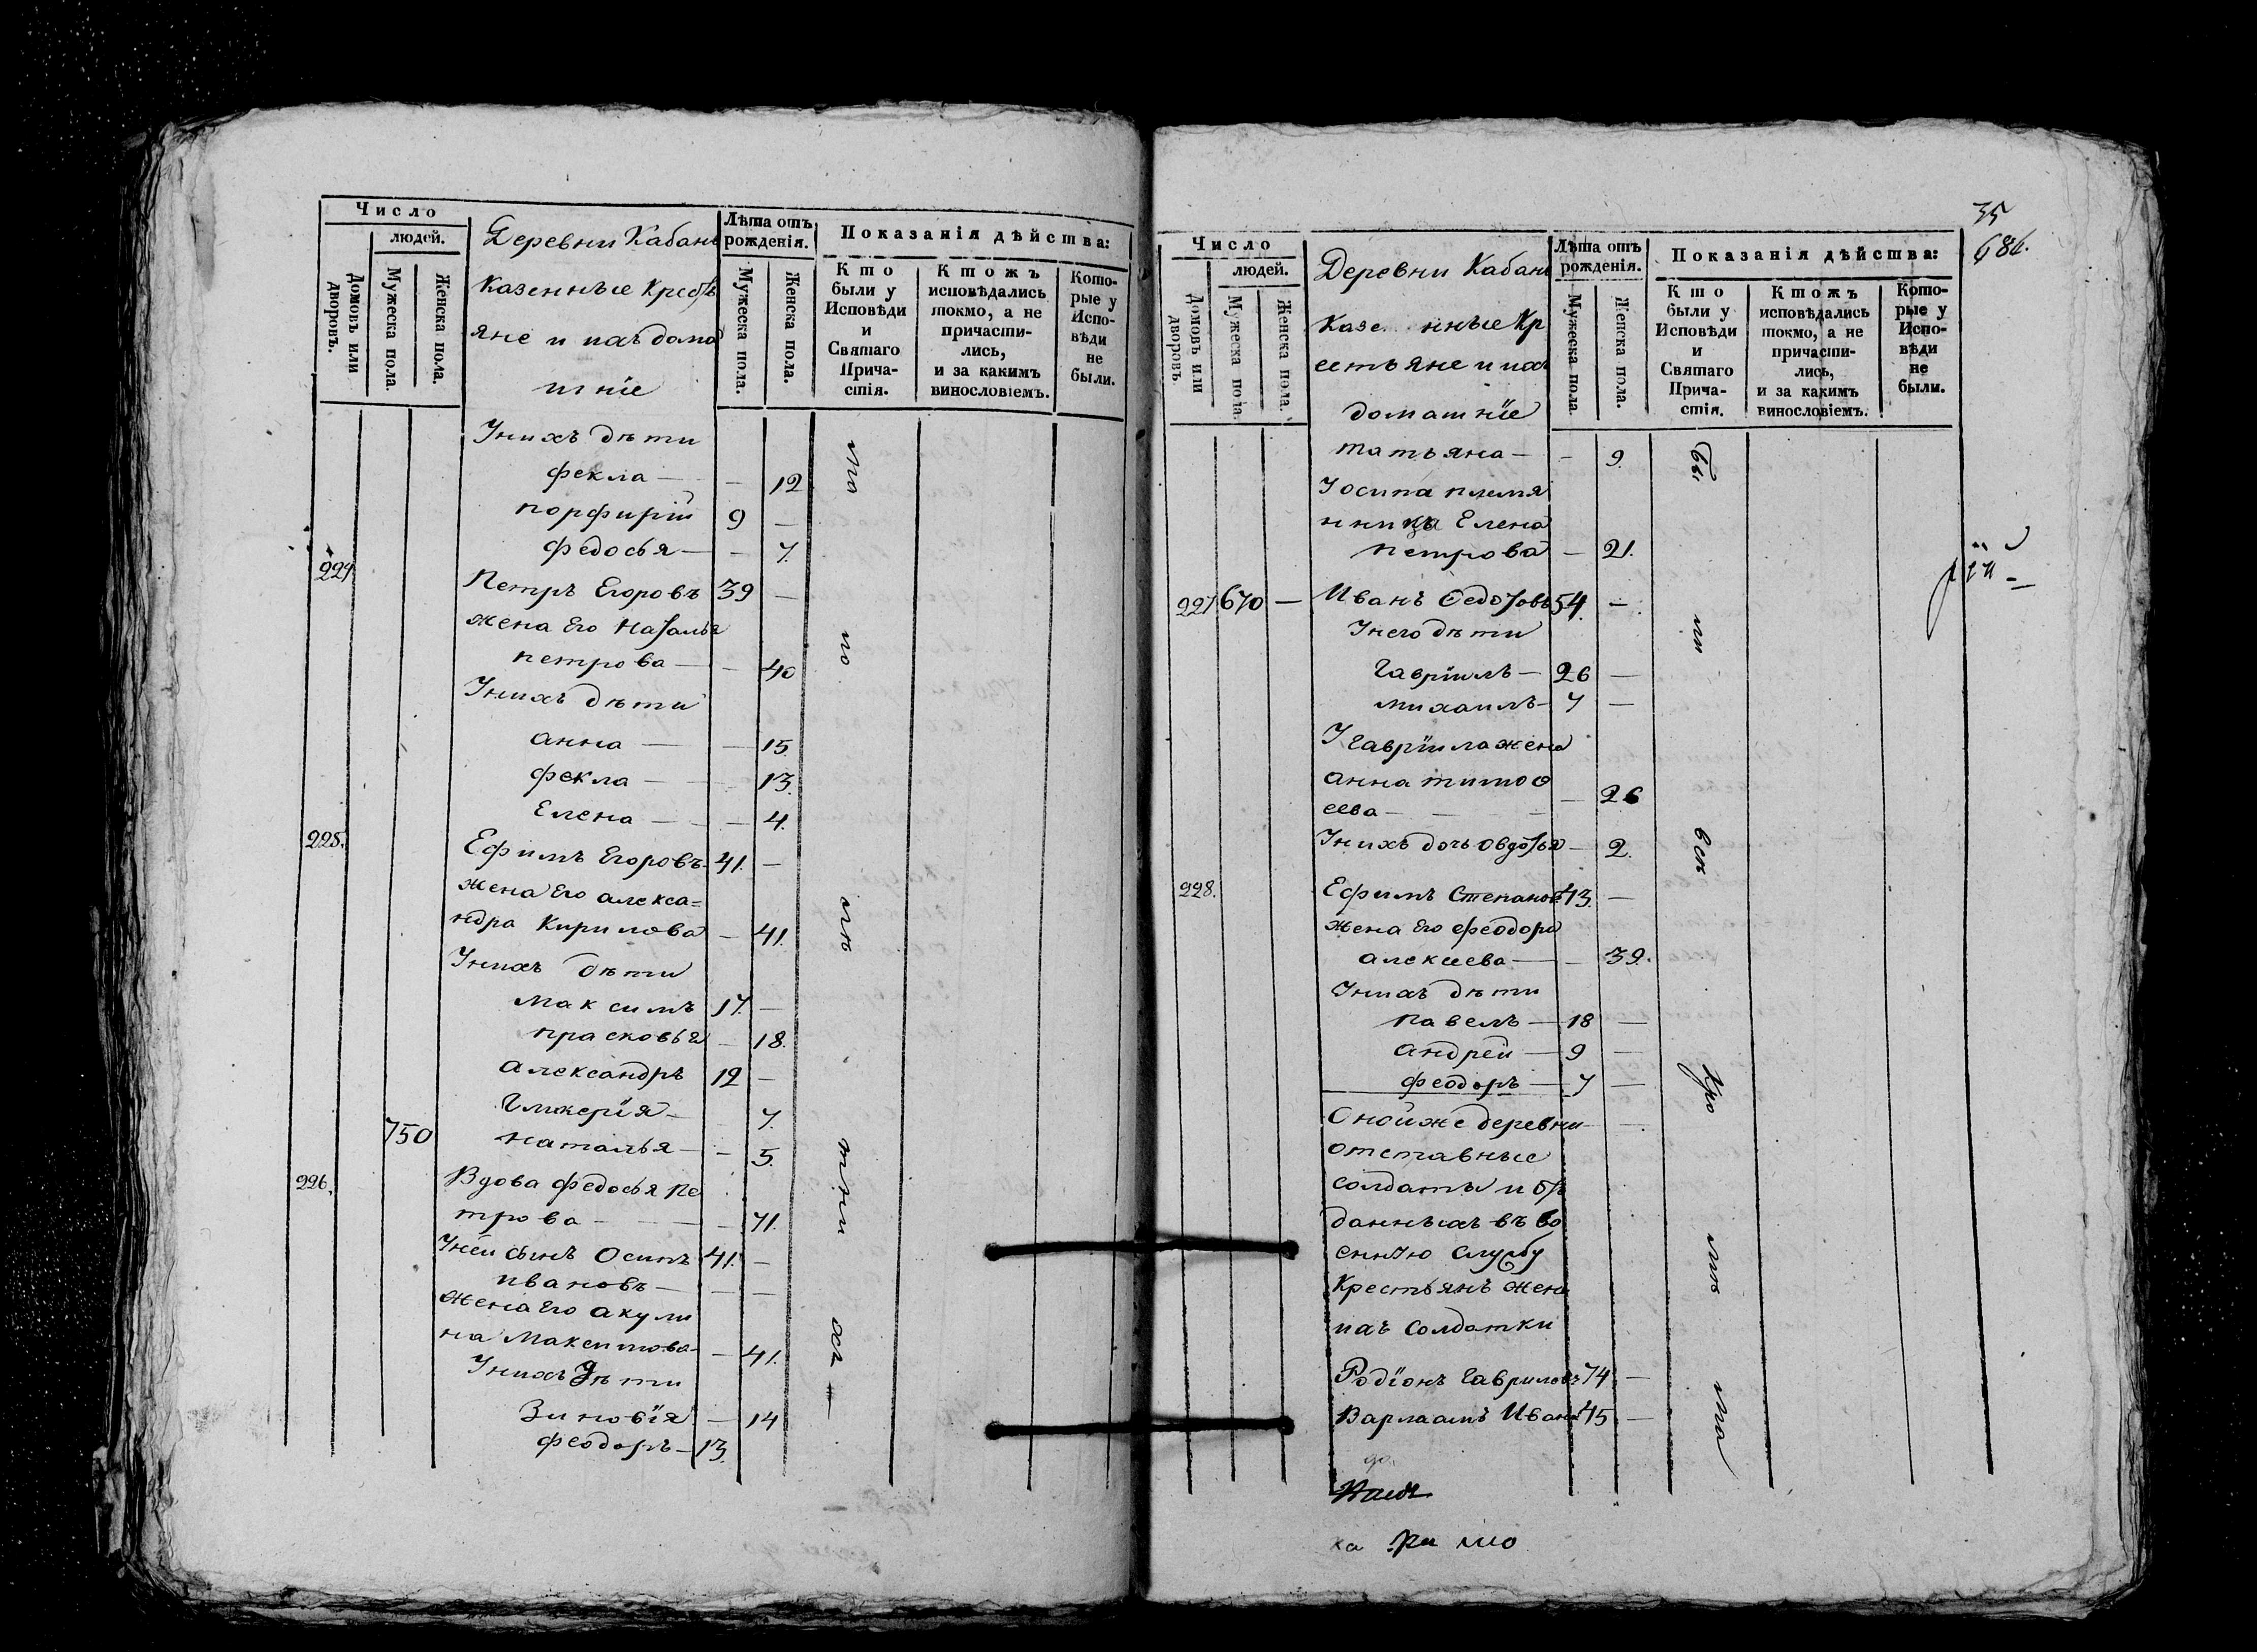 Число
людей.
Домовъ или дворовъ.
Мужеска пола.
Женска пола.
Деревни Кабань
Казенные Крестъ
яне и ихъ дома
шніе
Лѣта отъ
рожденія.
Мужеска пола.
Женска пола.
Показанія дѣйства:
Кто
были у
Исповѣди
и
Святаго
Прича-
стія.
Ктожъ
исповѣдались
токмо, а не
причасти-
лись,
и за какимъ
винословіемъ.
Кото-
рые у
Испо-
вѣди
не
были.
Унихъ дѣти
фекла — — 12
порфирій 9 —
федосья — — 7.
224. Петръ Егоровъ 39 —
жена Его наталья
петрова — — 40
Унихъ дѣти
анна — — 15
фекла — — 13.
Елена — — 4.
225. Ефимъ Егоровъ 41. —
жена Его алекса=
ндра Кирилова — 41.
Унихъ дѣти
Максимъ 17. —
прасковья — 18.
александръ 12 —
Гликерія — 7.
750 наталья — — 5.
226. Вдова федосья пе
трова — — 71.
Уней сынъ Осипъ 41. —
ивановъ — — —
жена Его акули
на Максимова — 41.
Унихъ дѣти
Зиновія — 14
феодоръ — 13.
35
686.
Число
людей.
Домовъ или дворовъ.
Мужеска пола.
Женска пола.
Деревни Кабань
Казе нные Кр
естьяне и ихъ
домашніе
Лѣта отъ
рожденія.
Мужеска пола.
Женска пола.
Показанія дѣйства:
Кто
были у
Исповѣди
и
Святаго
Прича-
стія.
Ктожъ
исповѣдались
токмо, а не
причасти-
лись,
и за какимъ
винословіемъ.
Кото-
рые у
Испо-
вѣди
не
были.
татьяна — — 9.
Уосипа племя
нница Елена
петрова — 21.
227 670 — Иванъ Ѳедотовъ 54. —
Унего дѣти
Гавріилъ — 26 —
михаилъ — 7 —
У Гавріила жена
анна тимоѳ
еева — — 26
Унихъ дочь овдотья — 2.
228. Ефимъ Степановъ 43. —
жена Его феодора
алексеева — — 39.
Унихъ дѣти
павелъ — 18 —
андрей — 9 —
феодоръ — 7 —
Онойже деревни — —
отставные
солдаты и от
данныхъ въ во
енную службу
Крестьянъ жены
ихъ солдатки
Родіонъ Гавриловъ 74 —
Варлаамъ Ивановъ 45 —